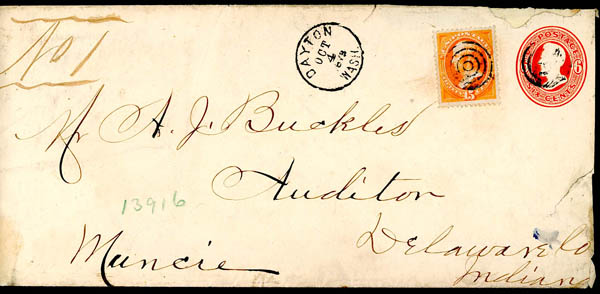 No 1
DAYTON
OCT
4
WASH.
15
U.S. POSTAGE
6
SIX CENTS
Mr A. J. Buckles
Auditor
13916
Delaware Co
Muncie
Indiana